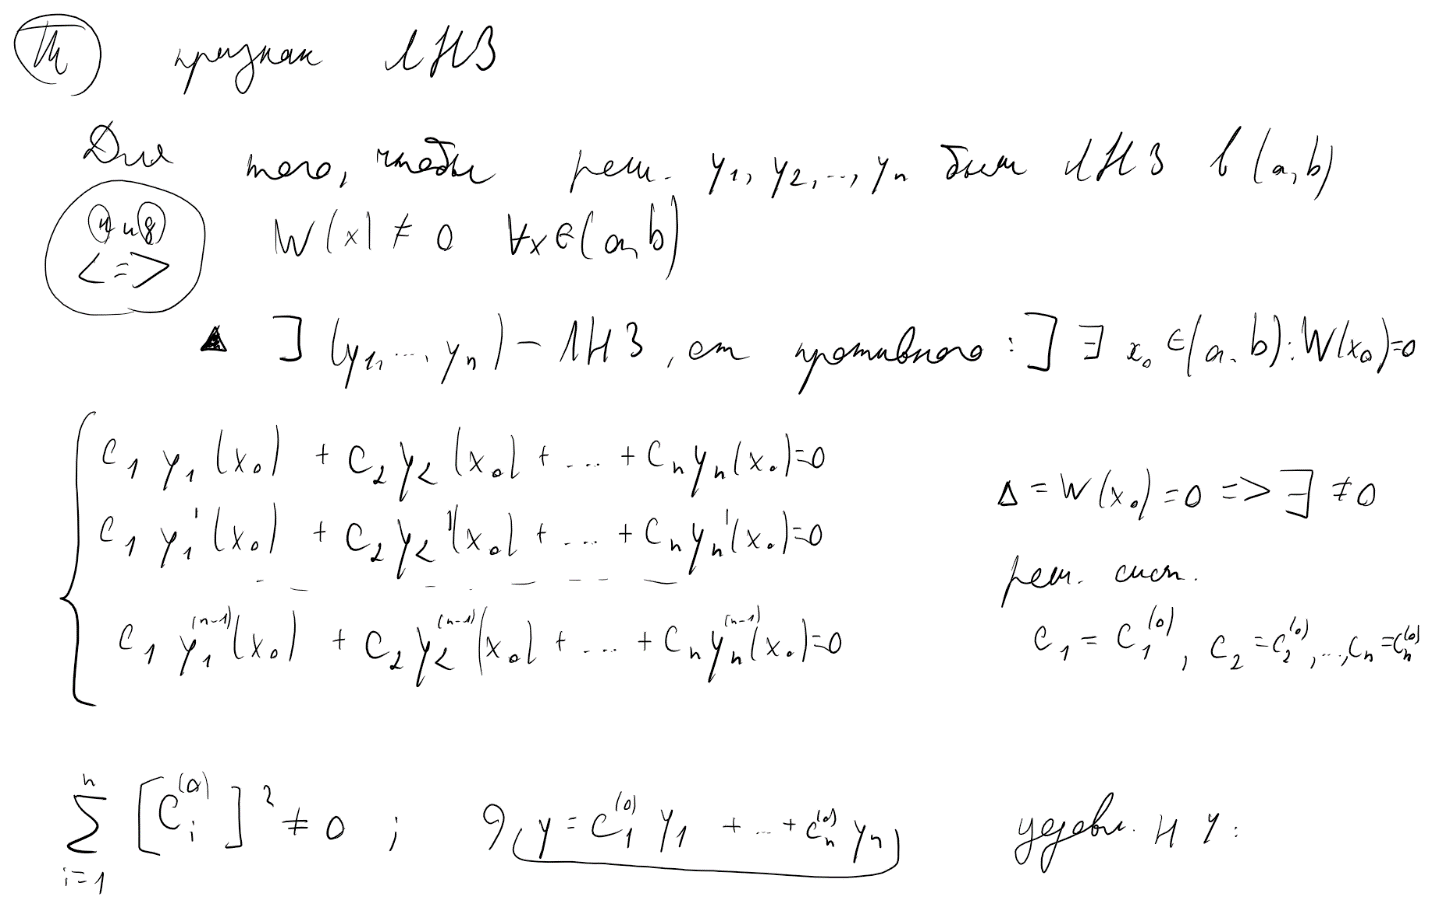 Th признак ЛНЗ
Для того, чтобы реш. y₁, y₂, ..., yₙ были ЛНЗ в (a, b)
н и д W(x) ≠ 0 ∀x ∈ (a, b)
<=>
▲ ∃ (y₁, ..., yₙ) - ЛНЗ, от противного: ] ∃ x₀ ∈ (a, b): W(x₀)=0
C₁ y₁(x₀) + C₂ y₂(x₀) + ... + Cₙ yₙ(x₀)=0
C₁ y₁'(x₀) + C₂ y₂'(x₀) + ... + Cₙ yₙ'(x₀)=0
- - - - - - -
C₁ y₁⁽ⁿ⁻¹⁾(x₀) + C₂ y₂⁽ⁿ⁻¹⁾(x₀) + ... + Cₙ yₙ⁽ⁿ⁻¹⁾(x₀)=0
Δ = W(x₀) = 0 => ∃ ≠ 0
реш. сист.
C₁ = C₁⁽⁰⁾, C₂ = C₂⁽⁰⁾, ..., Cₙ = Cₙ⁽⁰⁾
∑ᵢ₌₁ⁿ [Cᵢ⁽⁰⁾]² ≠ 0 ; y = C₁⁽⁰⁾ y₁ + ... + Cₙ⁽⁰⁾ yₙ удовл. НУ: